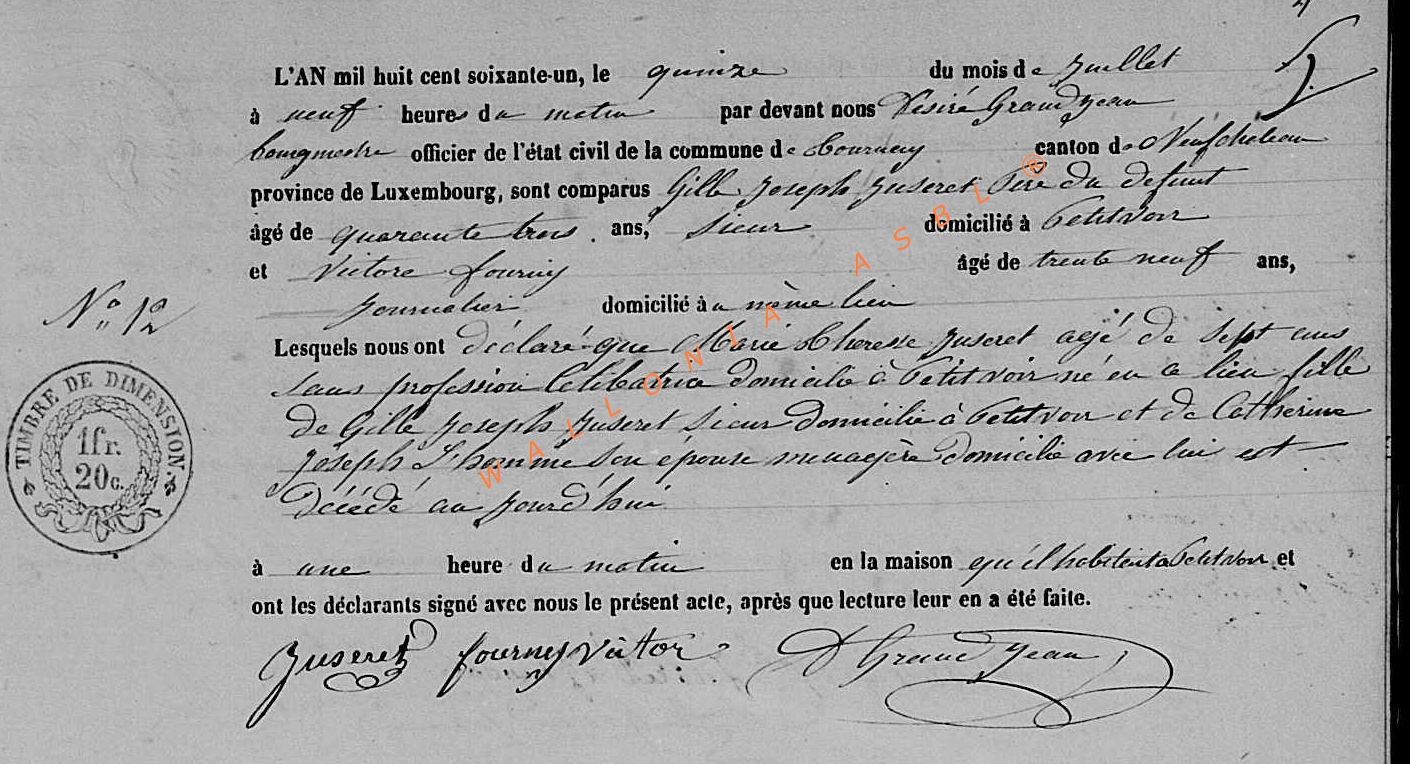 L'AN mil huit cent soixante-un, le quinze du mois de Juillet
à neuf heures du matin par devant nous Désiré Grandjean
bourgmestre officier de l'état civil de la commune de Tournay canton de Neufchateau
province de Luxembourg, sont comparus Gille Joseph Juseret Père du defunt
âgé de quarante trois ans, sieur domicilié à Petitvoir
et Victore fourny âgé de trente neuf ans,
Journalier domicilié au même lieu
N° 12
Lesquels nous ont déclaré que Marie Therese Juseret agé de sept ans
sans profession Celibatrice domicilié à Petitvoir né en ce lieu fille
de Gille Joseph Juseret sieur domicilié à Petitvoir et de Catherine
Joseph L'homme son épouse menagère domicilié avec lui est
décédé au jourd'hui
TIMBRE DE DIMENSION
1fr.
20c.
à une heure du matin en la maison qu'il habitent à Petitvoir et
ont les déclarants signé avec nous le présent acte, après que lecture leur en a été faite.
Juseret fourny Victor D Grandjean
WALLONIA ASBL ©